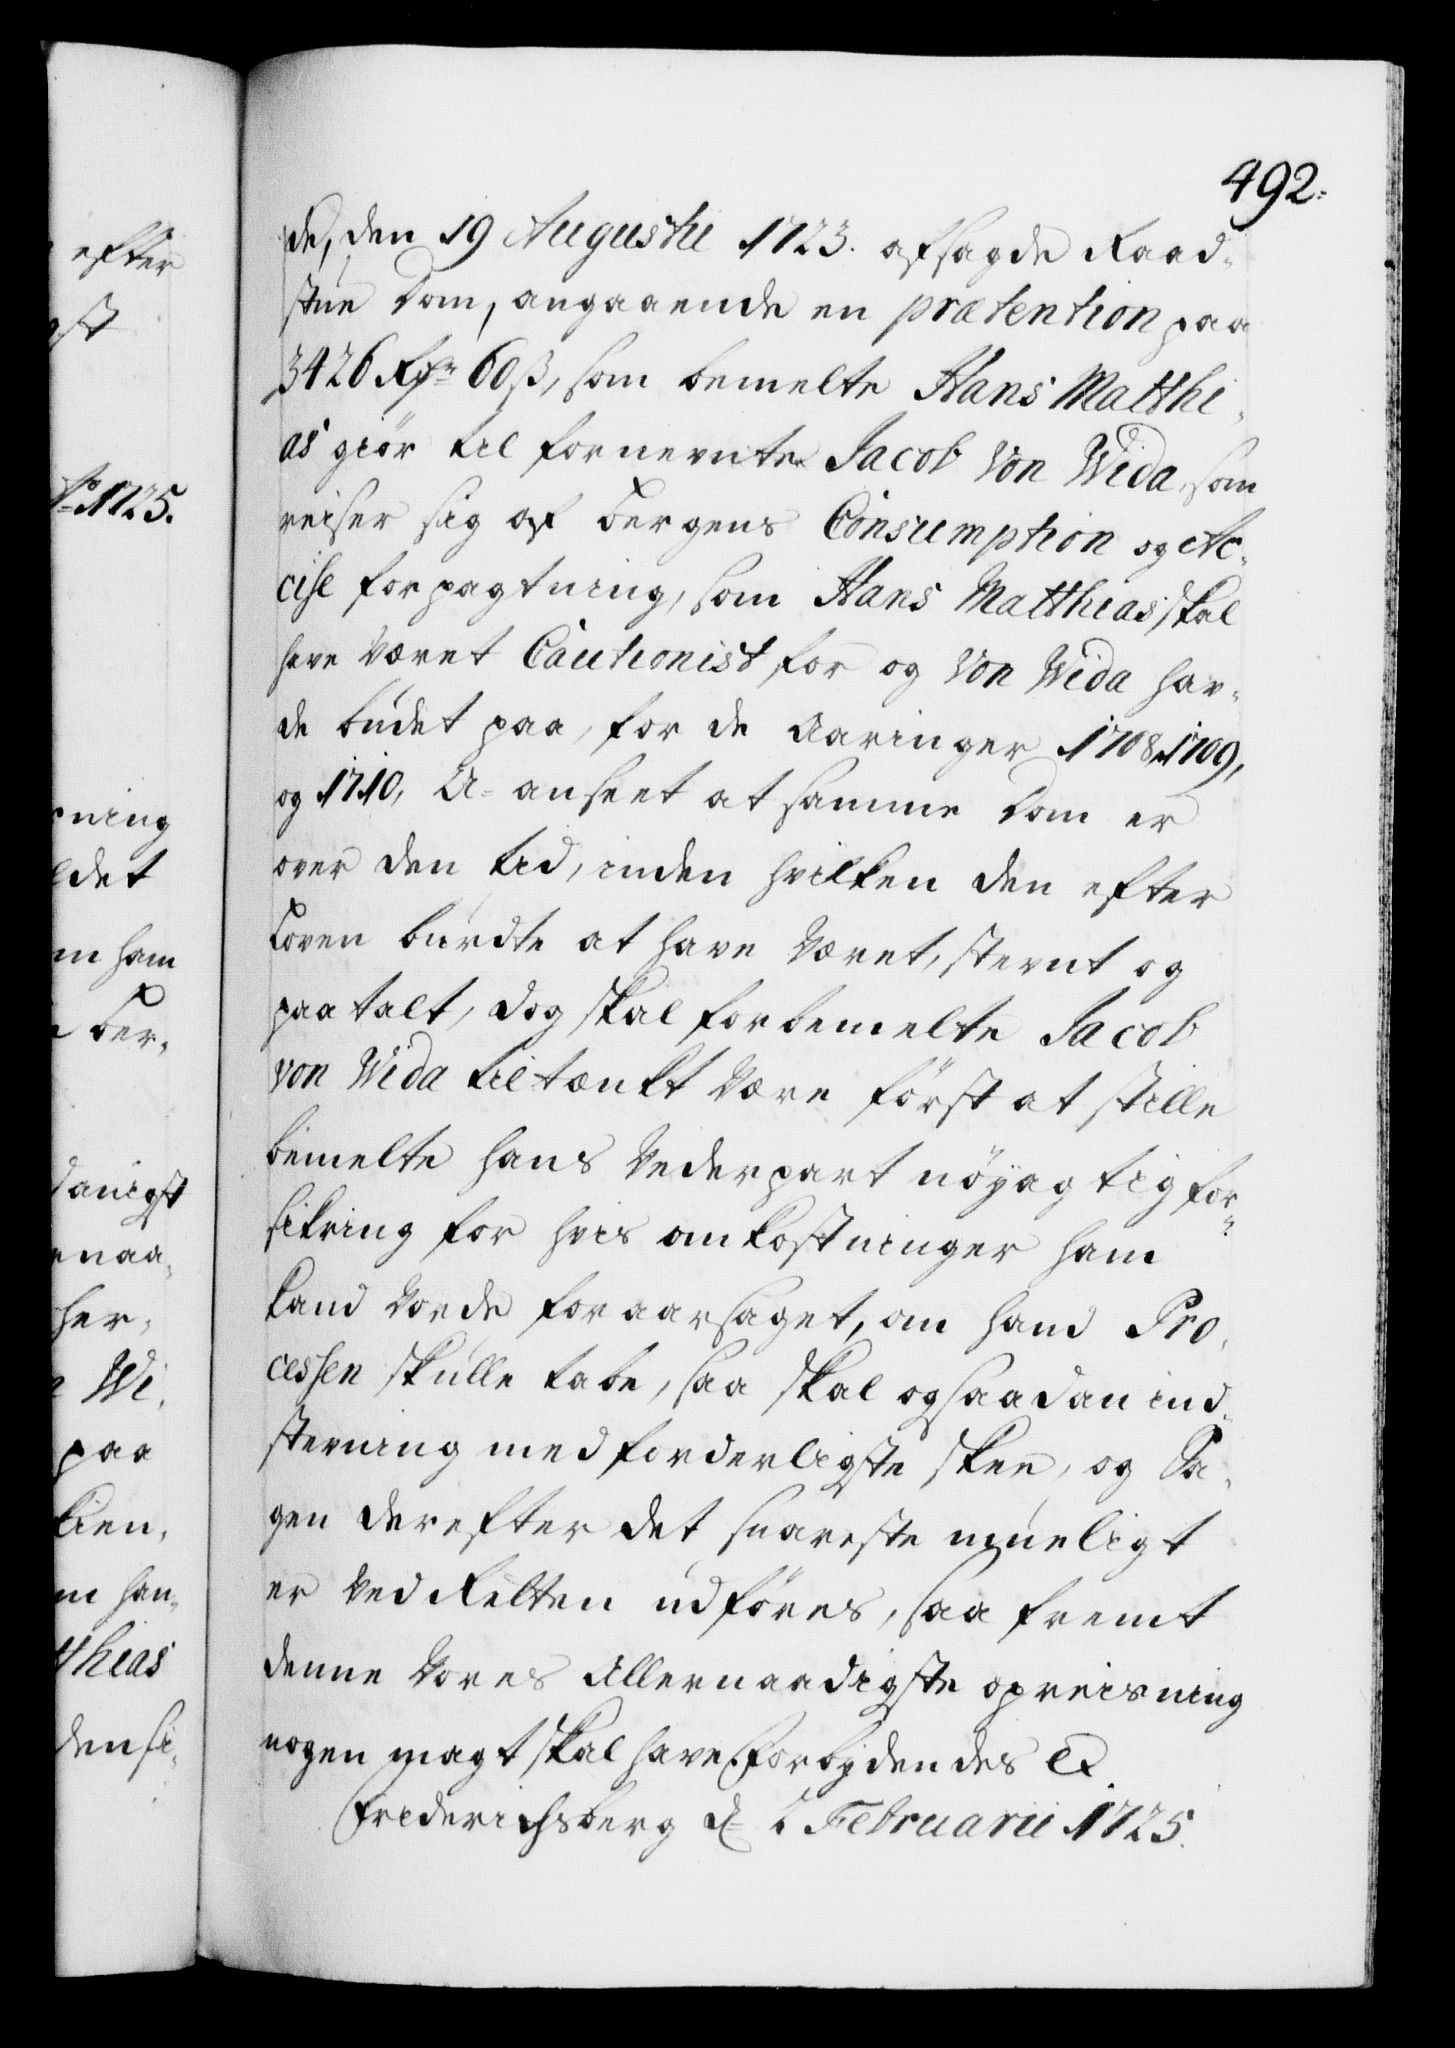 492.
de, den 19 Augusti 1723. afsagde Raad-
stue Dom, angaaende en prætention paa
3426 Rdr 60 ß, som bemelte Hans Matthi-
as giör til fornevnte Jacob Von Wida, som
reiser sig af Bergens Consumption og Ac-
cise forpagtning, som Hans Matthias skal
have været Cautionist for og Von Wida hav-
de budet paa, for de Aaringer 1708, 1709,
og 1710, U-anseet at samme Dom er
over den tid, inden hvilken den efter
Loven burdte at have været, stevnt og
paatalt, dog skal forbemelte Jacob
von Wida tiltænkt være först at stille
bemelte hans Vederpart nöyagtig for-
sikring for hvis omkostninger ham
kand vorde foraarsaget, om hand Pro-
cessen skulle tabe, saa skal og saadan ind-
stevning med forderligste skee, og Sa-
gen derefter det snareste mueligt
er ved Retten udföres, saa fremt
denne Vores Allernaadigste opreisning
nogen magt skal have. Forbydendes &
Friderichsberg d. 2 Februarii 1725.
efter
1725.
rning
ldet
m ham
Ber-
danigst
naa-
her-
Wi-
paa
tien,
m han-
thias
den si-